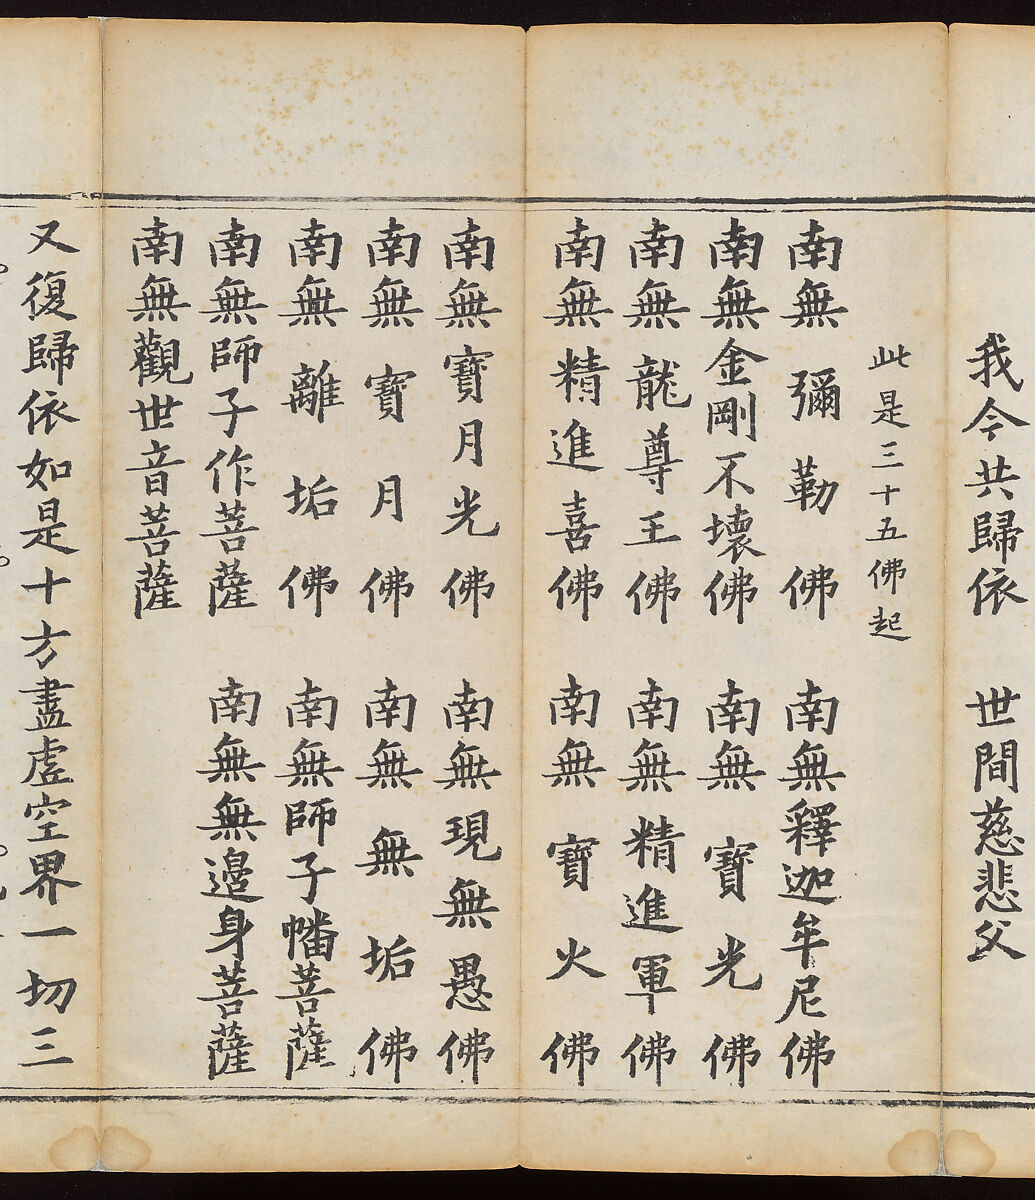 我今共歸依 世間慈悲父
此是三十五佛起
南無彌勒佛 南無釋迦牟尼佛
南無金剛不壞佛 南無寶光佛
南無龍尊王佛 南無精進軍佛
南無精進喜佛 南無寶火佛
南無寶月光佛 南無現無愚佛
南無寶月佛 南無無垢佛
南無離垢佛 南無師子幡菩薩
南無師子作菩薩 南無無邊身菩薩
南無觀世音菩薩
又復歸依如是十方盡虛空界一切三